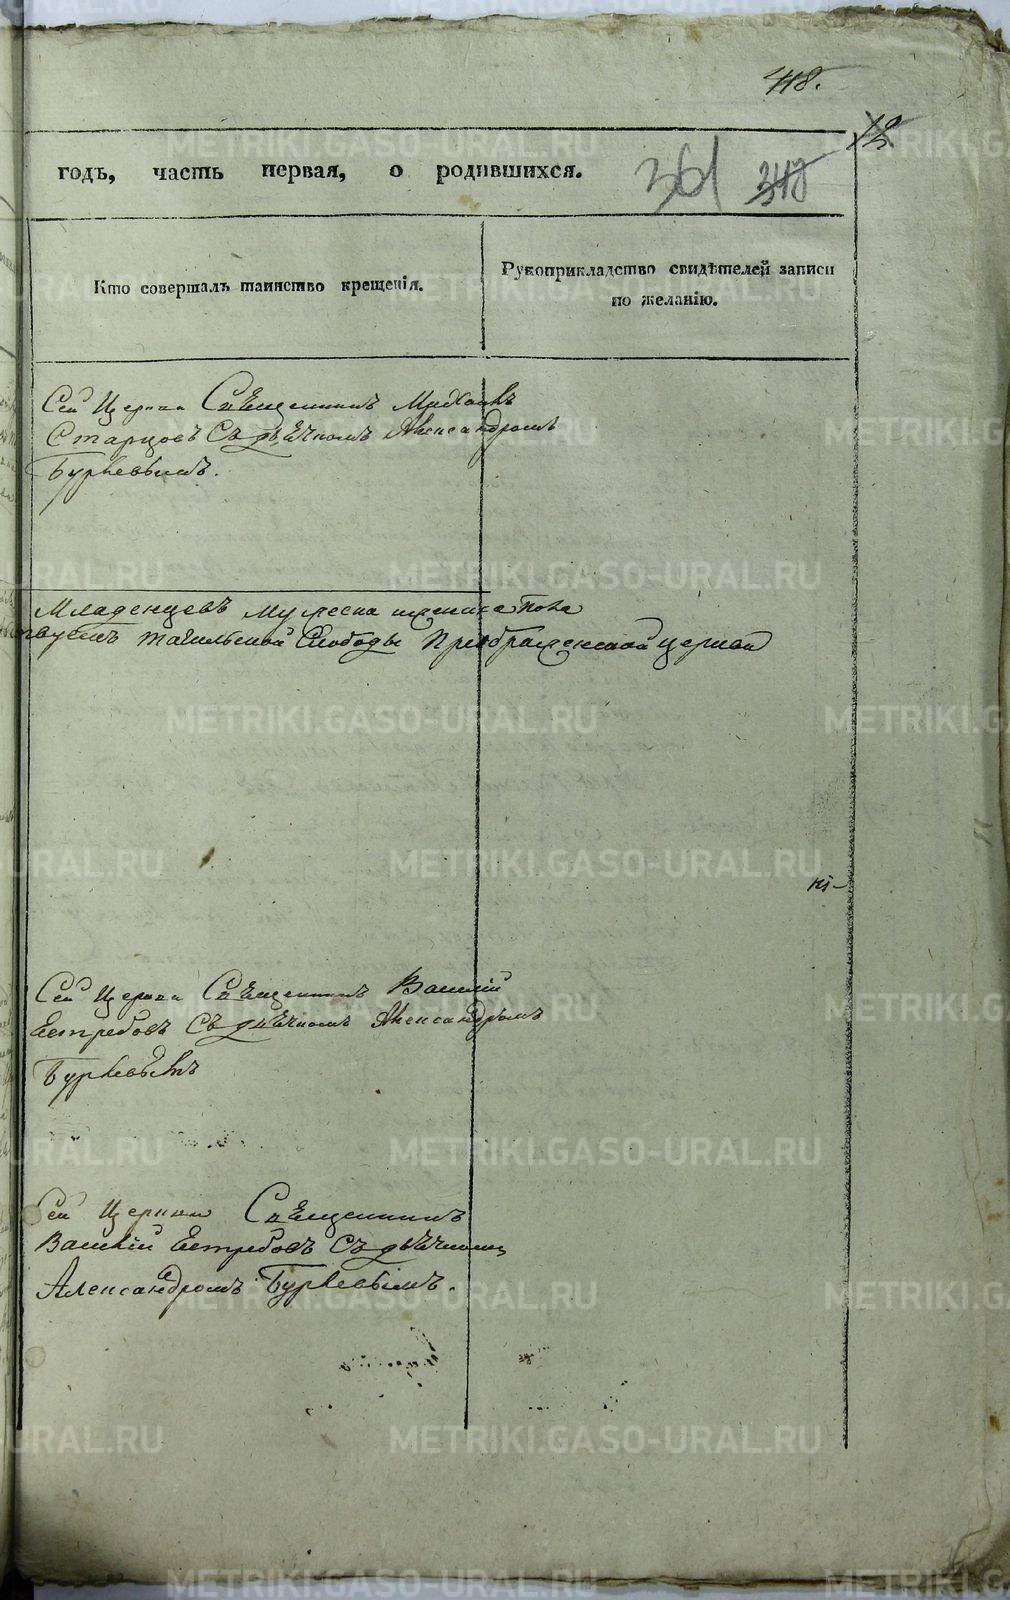 418.
12
годъ, часть первая, о родившихся. 361 348
Кто совершалъ таинство крещенія.
Рукоприкладство свидѣтелей записи
по желанію.
Сей Церкви Священникъ Михаилъ
Старцовъ Съ дьячкомъ Александромъ
Бурлевымъ.
Младенцевъ мужеска пола
Тагильской Слободы Преображенской церкви
Сей Церкви Священникъ Василій
Ястребовъ Съ дьячкомъ Александромъ
Бурлевымъ
Сей Церкви Священникъ
Василій Ястребовъ Съ дьячкомъ
Александромъ Бурлевымъ.
METRIKI.GASO-URAL.RU